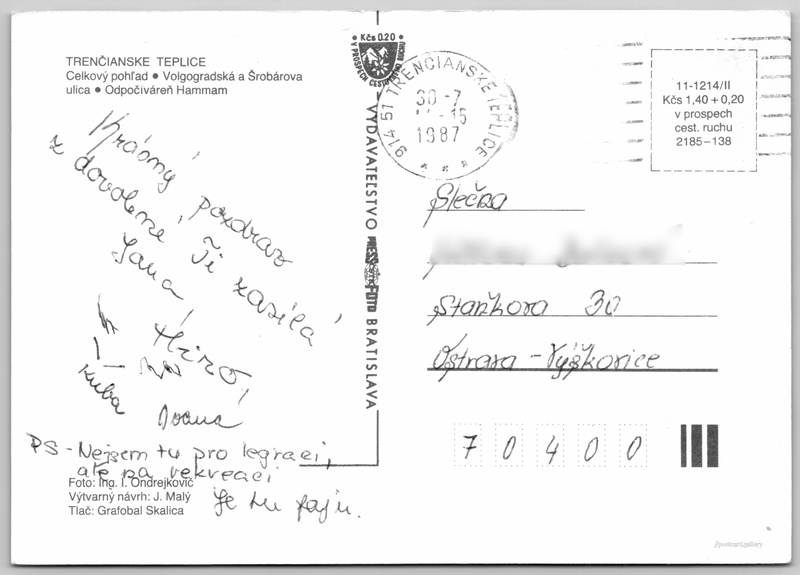 TRENČIANSKE TEPLICE
Celkový pohľad ● Volgogradská a Šrobárova
ulica ● Odpočiváreň Hammam
Krásný pozdrav
z dovolené Ti zasílá
Jana,
Miro,
Kuba
Ivana
PS - Nejsem tu pro legraci,
ale na rekreaci
Je tu fajn.
Foto: Ing. I. Ondrejkovič
Výtvarný návrh: J. Malý
Tlač: Grafobal Skalica
Kčs 0.20
V PROSPECH CESTOVNÉHO RUCHU
VYDAVATEĽSTVO PRESSFOTO BRATISLAVA
914 51 TRENČIANSKE TEPLICE
30 -7
-15
1987
11-1214/II
Kčs 1,40 + 0,20
v prospech
cest. ruchu
2185–138
Slečna
Staňkova 30
Ostrava - Výškovice
7 0 4 0 0
postcard.gallery